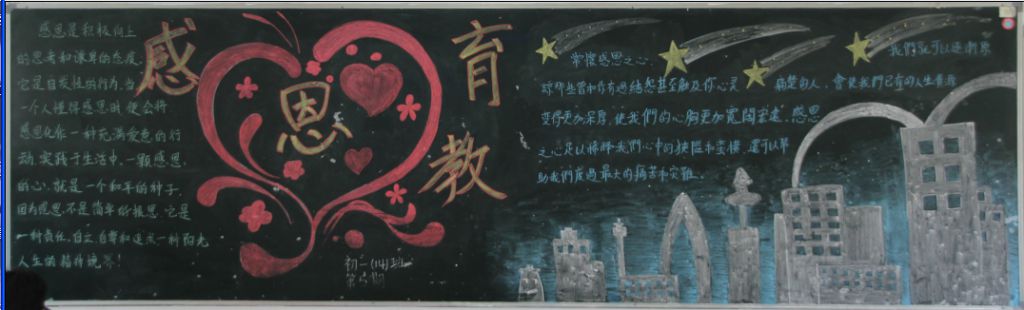 感恩是积极向上
的思考和谦卑的态度.
它是自发性的行为.当
一个人懂得感恩时.便会将
感恩化作一种充满爱意的行
动.实践于生活中.一颗感恩
的心.就是一个和平的种子.
因为感恩.不是简单的报恩.它是
一种责任.自立.自尊和追求一种阳光
人生的精神境界!
感
恩
教
育
初二(14)班
第六期
常懷感恩之心.
我們就可以逐漸原
諒那些曾和你有過結怨甚至觸及你心灵
痛楚的人.會使我們已有的人生
變得更加深厚.使我們的心胸更加寬闊宏遠.感恩
之心足以稀釋我們心中的狹隘和蛮横.還可以幫
助我們度過最大的痛苦和灾難.